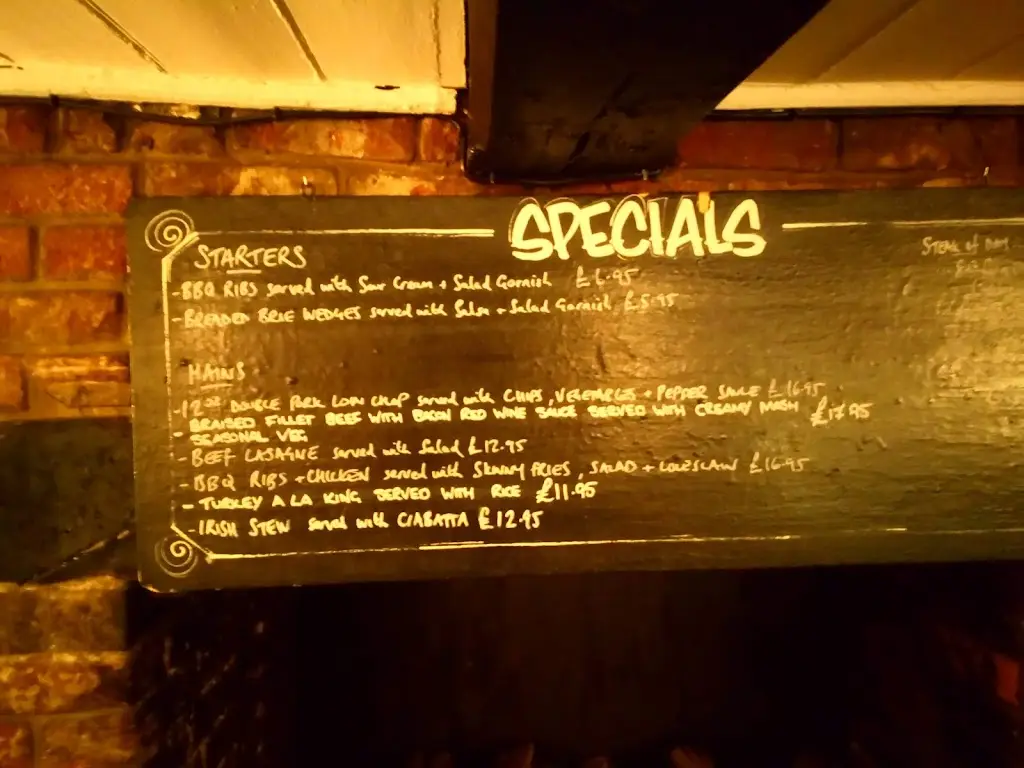 SPECIALS
STARTERS
-BBQ RIBS served with Sour Cream + Salad Garnish £6.95
-BREADED BRIE WEDGES served with Salsa + Salad Garnish £5.95
MAINS
-12oz DOUBLE PORK LOIN CHOP served with CHIPS, VEGETABLES + PEPPER SAUCE £16.95
BRAISED FILLET BEEF WITH BACON RED WINE SAUCE SERVED WITH CREAMY MASH £17.95
- SEASONAL VEG
-BEEF LASAGNE served with Salad £12.95
-BBQ RIBS + CHICKEN served with SKINNY FRIES, SALAD + COLESLAW £16.95
- TURKEY A LA KING SERVED WITH RICE £11.95
-IRISH STEW served with CIABATTA £12.95
STEAK of DAY